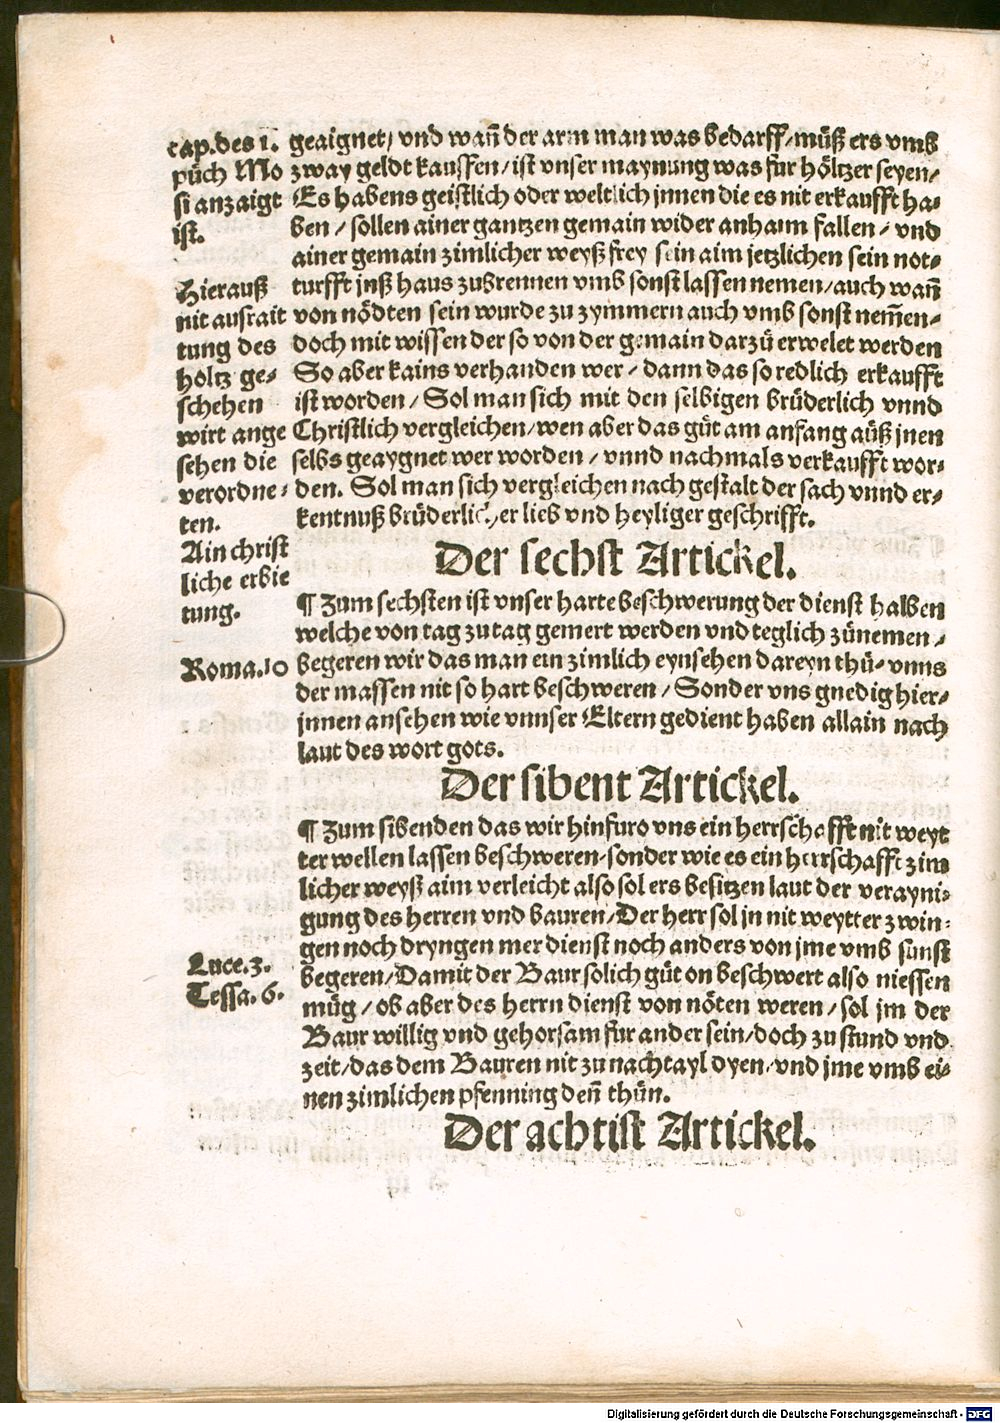 cap.des 1.
pũch Mo
si anzaigt
ist.
Hierauß
nit ausrait
tung des
holtz ge⸗
schehen
wirt ange
sehen die
verordne⸗
ten.
Ain christ
liche erbie
tung.
Roma.10
Luce.3.
Tessa.6.
geaignet/ vnd wañ der arm man was bedarff/ můß ers vmb
zway geldt kauffen/ ist vnser maynung was fur höltzer seyen/
Es habens geistlich oder weltlich jnnen die es nit erkaufft ha⸗
ben/ sollen ainer gantzen gemain wider anhaim fallen/ vnd
ainer gemain zimlicher weyß frey sein aim jetzlichen sein not⸗
turfft jnß haus zubrennen vmb sonst lassen nemen/auch wañ
von nödten sein wurde zu zymmern auch vmb sonst nem̃en⸗
doch mit wissen der so von der gemain darzů erwelet werden
So aber kains verhanden wer/ dann das so redlich erkaufft
ist worden/ Sol man sich mit den selbigen brüderlich vnnd
Christlich vergleichen/wen aber das gůt am anfang aůß jnen
selbs geaygnet wer worden/ vnnd nachmals verkaufft wor⸗
den. Sol man sich vergleichen nach gestalt der sach vnnd er⸗
kentnuß brüderlicher lieb vnd heyliger geschrifft.
Der sechst Artickel.
¶ Zum sechsten ist vnser harte beschwerung der dienst halben
welche von tag zu tag gemert werden vnd teglich zůnemen/
begeren wir das man ein zimlich eynsehen dareyn thů⸗ vnns
der massen nit so hart beschweren/ Sonder vns gnedig hier⸗
jnnen ansehen wie vnnser Eltern gedient haben allain nach
laut des wort gots.
Der sibent Artickel.
¶ Zum sibenden das wir hinfuro vns ein herrschafft nit weyt
ter wellen lassen beschweren⸗sonder wie es ein herrschafft zim
licher weyß aim verleicht also sol ers besitzen laut der verayni⸗
gung des herren vnd bauren/Der herr sol jn nit weytter zwin⸗
gen noch dryngen mer dienst noch anders von jme vmb sunst
begeren/Damit der Baur solich gůt on beschwert also niessen
můg/ ob aber des herrn dienst von nöten weren/ sol jm der
Baur willig vnd gehorsam fur ander sein/doch zu stund vnd
zeit/das dem Bauren nit zu nachtayl dyen/vnd jme vmb ei⸗
nen zimlichen pfenning deñ thůn.
Der achtist Artickel.
Digitalisierung gefördert durch die Deutsche Forschungsgemeinschaft - DFG